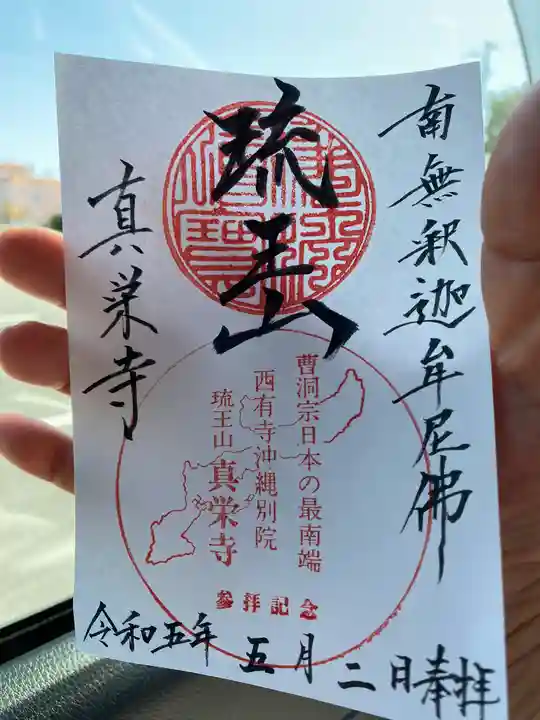 南無釈迦牟尼佛
琉王山
真栄寺
曹洞宗日本の最南端
西有寺沖縄別院
琉王山 真栄寺
参拝記念
令和五年 五月 二日奉拝